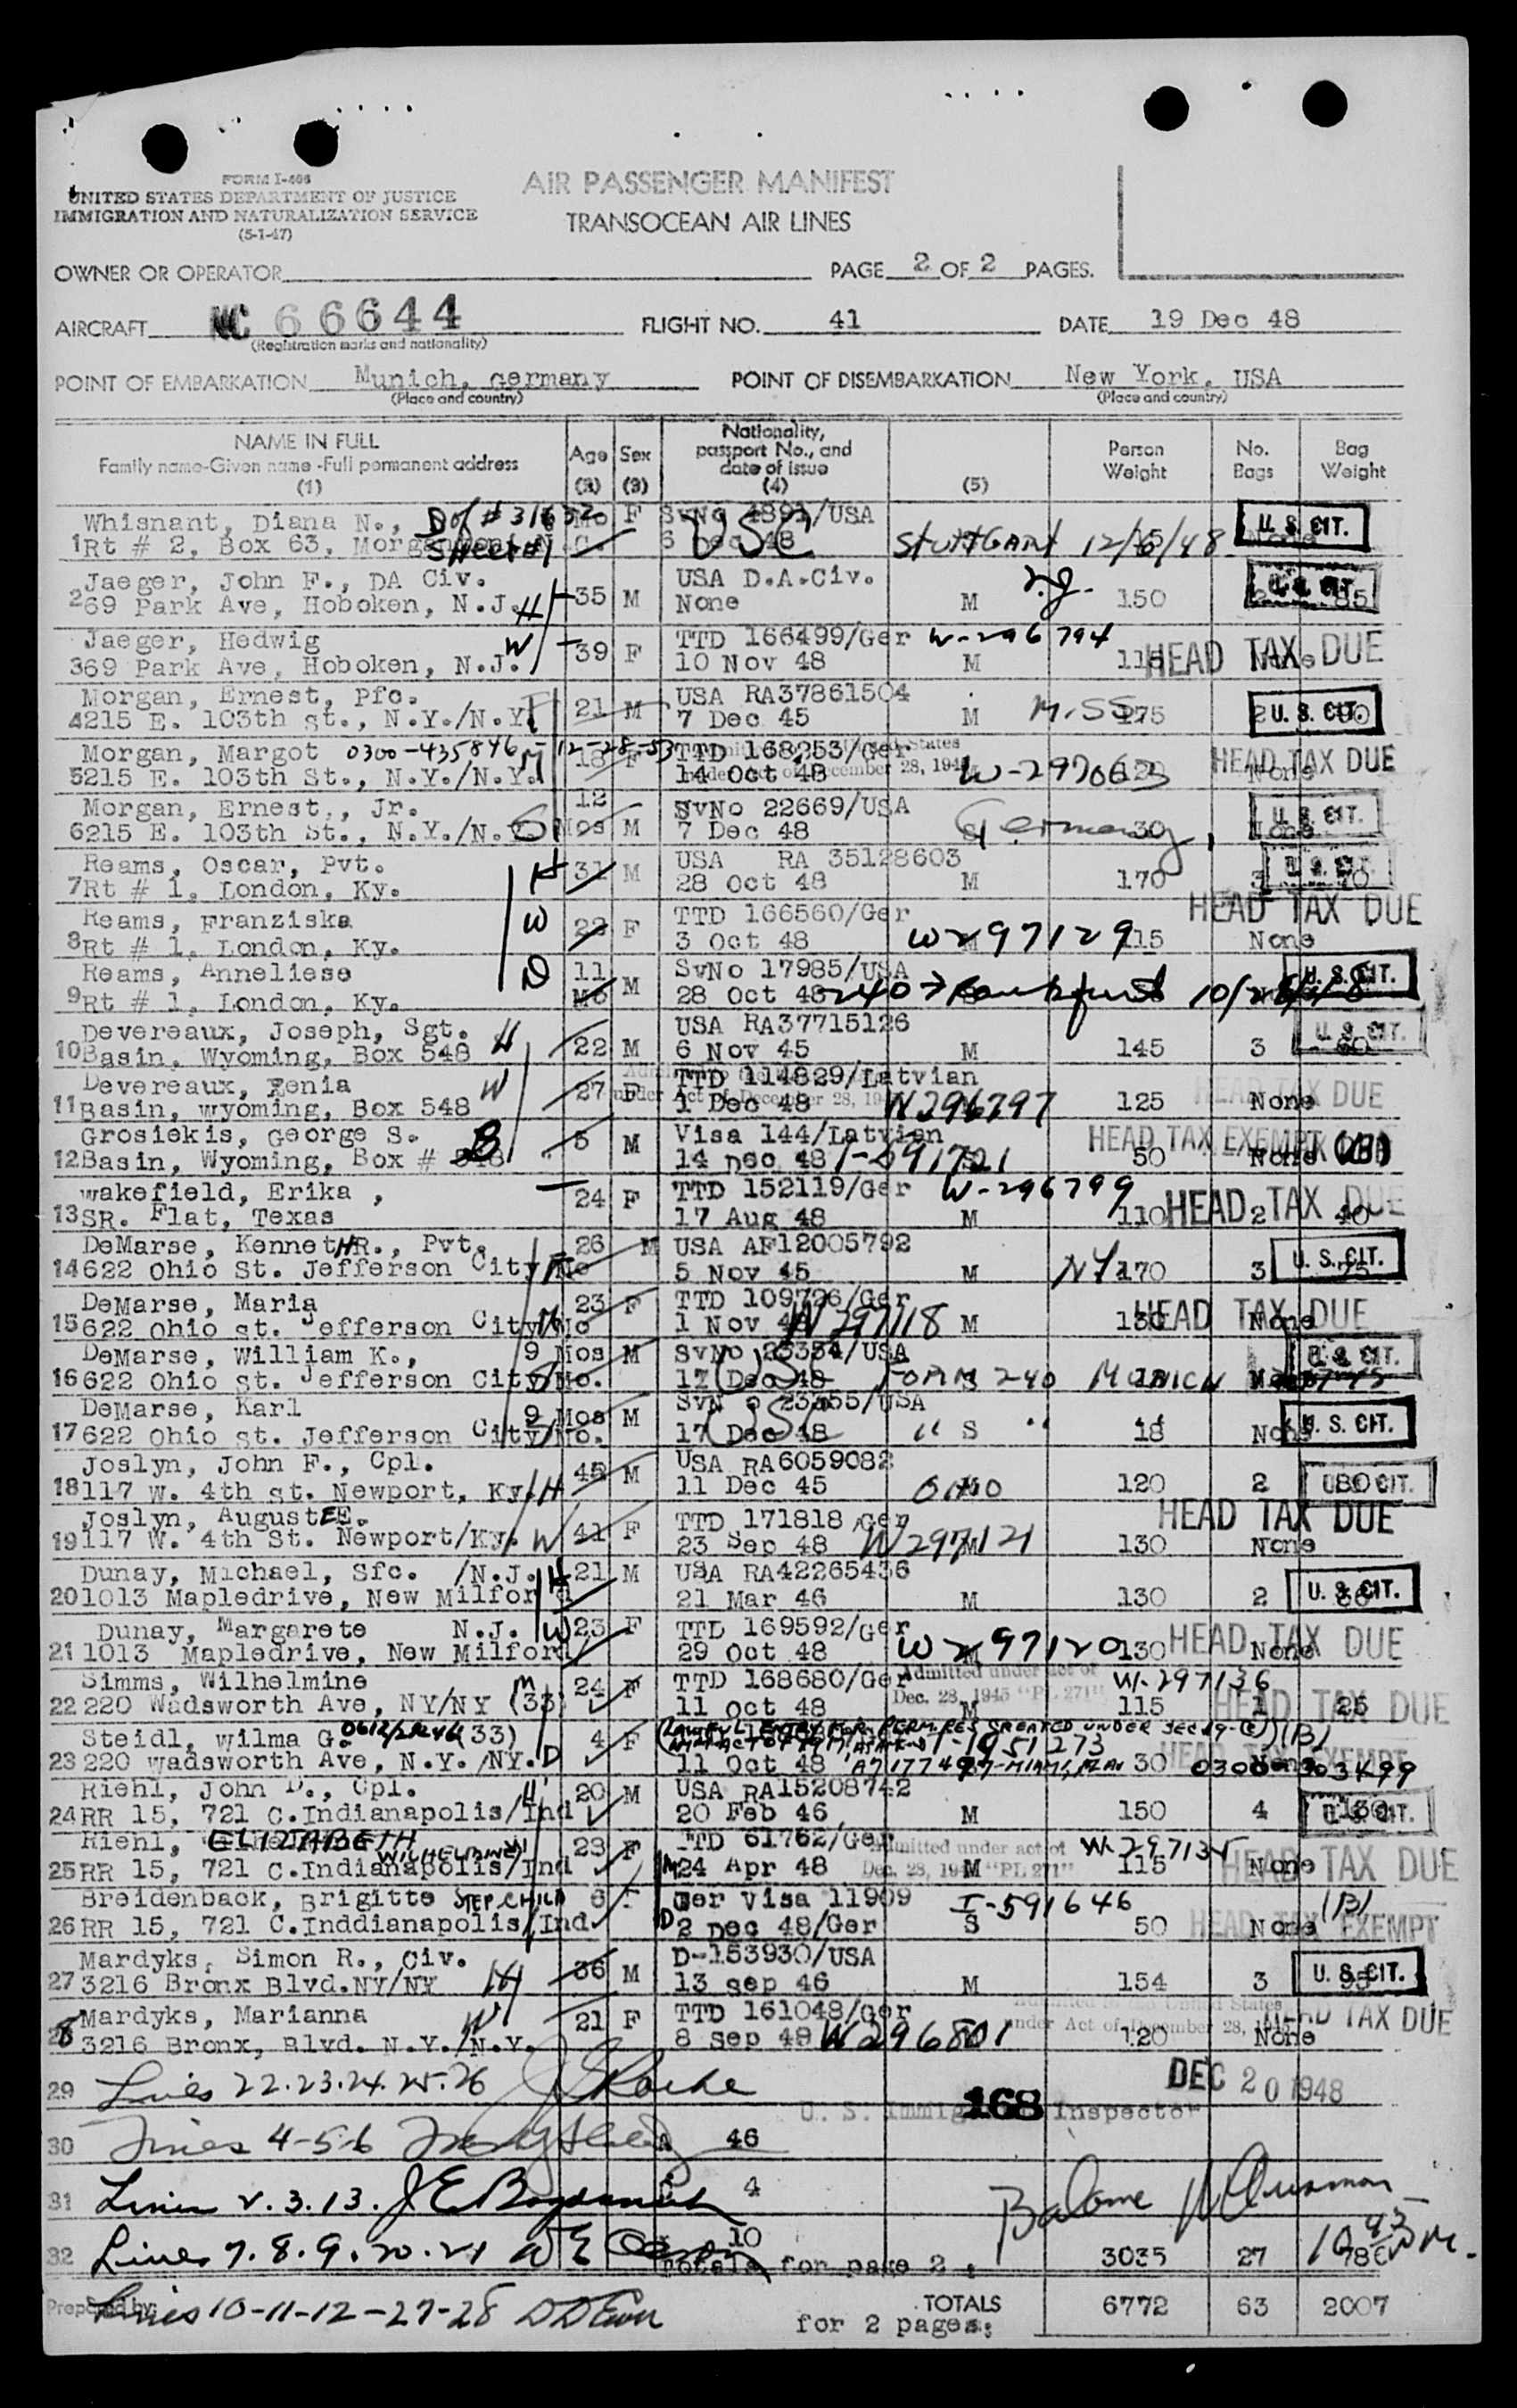 FORM I-466
UNITED STATES DEPARTMENT OF JUSTICE
IMMIGRATION AND NATURALIZATION SERVICE
(5-1-47)
AIR PASSENGER MANIFEST
TRANSOCEAN AIR LINES
OWNER OR OPERATOR PAGE 2 OF 2 PAGES.
AIRCRAFT NC 66644 FLIGHT NO. 41 DATE 19 Dec 48
(Registration marks and nationality)
POINT OF EMBARKATION Munich, Germany POINT OF DISEMBARKATION New York, USA
(Place and country) (Place and country)
NAME IN FULL Age Sex Nationality, passport No., and date of issue Person Weight No. Bags Bag Weight
Family name-Given name -Full permanent address
(1) (2) (3) (4) (5)
Whisnant, Diana N., Mo F SvNo 4891/USA U. S. CIT.
1 Rt # 2, Box 63, SHEET #1 6 Dec 48 USC STUTTGART 12/6/48
Jaeger, John F., DA Civ. 35 M USA D.A.Civ. N.J. U. S. CIT.
2 69 Park Ave, Hoboken, N.J. H None M 150 2 85
Jaeger, Hedwig W 39 F TTD 166499/Ger W-296794 HEAD TAX DUE
3 69 Park Ave, Hoboken, N.J. 10 Nov 48 M None
Morgan, Ernest, Pfc. 21 M USA RA37861504 U. S. CIT.
4 215 E. 103th St., N.Y./N.Y. 7 Dec 45 M Miss. 175 2 90
Morgan, Margot 0300-435846 12-28-53 18 F TTD 168253/Ger HEAD TAX DUE
5 215 E. 103th St., N.Y./N.Y. 14 Oct 48 W-297063 None
Morgan, Ernest., Jr. 12 SvNo 22669/USA U. S. CIT.
6 215 E. 103th St., N.Y./N.Y. S Mos M 7 Dec 48 Germany 30 None
Reams, Oscar, Pvt. H 31 M USA RA 35128603 U. S. CIT.
7 Rt # 1, London, Ky. 28 Oct 48 M 170 3 70
Reams, Franziska W 22 F TTD 166560/Ger HEAD TAX DUE
8 Rt # 1, London, Ky. 3 Oct 48 W297129 115 None
Reams, Anneliese D 11 M SvNo 17985/USA U. S. CIT.
9 Rt # 1, London, Ky. Mo 28 Oct 48 240 Frankfurt
Devereaux, Joseph, Sgt. H 22 M USA RA37715126 U. S. CIT.
10 Basin, Wyoming, Box 548 6 Nov 45 M 145 3 60
Devereaux, Xenia W 27 F TTD 114829/Latvian HEAD TAX DUE
11 Basin, Wyoming, Box 548 1 Dec 48 W296797 125 None
Grosiekis, George S. B 5 M Visa 144/Latvian HEAD TAX EXEMPT
12 Basin, Wyoming, Box # 548 14 Dec 48 I-591721 50 None (B)
Wakefield, Erika , 24 F TTD 152119/Ger W-296799 HEAD TAX DUE
13 SR. Flat, Texas 17 Aug 48 M 110 2 40
DeMarse, KennetH R., Pvt. 26 M USA AF12005792 U. S. CIT.
14 622 Ohio St. Jefferson City Mo 5 Nov 45 M NY 170 3 75
DeMarse, Maria 23 F TTD 109726/Ger HEAD TAX DUE
15 622 Ohio St. Jefferson City Mo 1 Nov 48 W297118 M 130 None
DeMarse, William K., 9 Mos M SvNo 23354/USA U. S. CIT.
16 622 Ohio St. Jefferson City Mo. 17 Dec 48 USC FORM 240 MUNICH
DeMarse, Karl 9 Mos M SvN o 23355/USA U. S. CIT.
17 622 Ohio St. Jefferson City Mo. 17 Dec 48 USC " S " 18 None
Joslyn, John F., Cpl. 45 M USA RA6059082 U. S. CIT.
18 117 W. 4th St. Newport, Ky. H 11 Dec 45 OHIO 120 2 80
Joslyn, AugustEE. 41 F TTD 171818/Ger HEAD TAX DUE
19 117 W. 4th St. Newport/Ky. W 23 Sep 48 W297121 130 None
Dunay, Michael, Sfc. /N.J. H 21 M USA RA42265436 U. S. CIT.
20 1013 Mapledrive, New Milford 21 Mar 46 M 130 2
Dunay, Margarete N.J. W 23 F TTD 169592/Ger HEAD TAX DUE
21 1013 Mapledrive, New Milford 29 Oct 48 W297120 130 None
Simms, Wilhelmine M 24 F TTD 168680/Ger Admitted under act of Dec. 28, 1945 "PL 271" W-297136 HEAD TAX DUE
22 220 Wadsworth Ave, NY/NY (33) 11 Oct 48 M 115 1 25
Steidl, Wilma G. (33) 4 F (LAWFUL ENTRY FOR PERM. RES CREATED UNDER SEC 19-(c)) (B)
23 220 Wadsworth Ave, N.Y./NY. D 11 Oct 48 30 HEAD TAX EXEMPT
Riehl, John D., Cpl. H 20 M USA RA15208742 U. S. CIT.
24 RR 15, 721 C.Indianapolis/Ind 20 Feb 46 M 150 4 130
Riehl, ELIZABETH WILHELMINE 23 F TTD 61762/Ger Admitted under act of Dec. 28, 1945 "PL 271" W-297135 HEAD TAX DUE
25 RR 15, 721 C.Indianapolis/Ind 24 Apr 48 M 115 None
Breidenback, Brigitte STEP CHILD 6 F Ger Visa 11909 I-591646 (B)
26 RR 15, 721 C.Inddianapolis/Ind 2 Dec 48/Ger S 50 None HEAD TAX EXEMPT
Mardyks, Simon R., Civ. H 36 M D-153930/USA U. S. CIT.
27 3216 Bronx Blvd.NY/NY 13 Sep 46 M 154 3 95
Mardyks, Marianna W 21 F TTD 161048/Ger Admitted to the United States under Act of December 28, HEAD TAX DUE
28 3216 Bronx, Blvd. N.Y./N.Y. 8 Sep 48 W296801 120 None
29 Lines 22.23.24.25.26 DEC 20 1948
168 U. S. Immig Inspector
30 Lines 4-5-6 A 46
31 Lines 2.3.13. 4
32 Lines 7.8.9.20.21 10
Totals for page 2 : 3035 27 780
Prepared by: Lines 10-11-12-27-28
TOTALS for 2 pages: 6772 63 2007